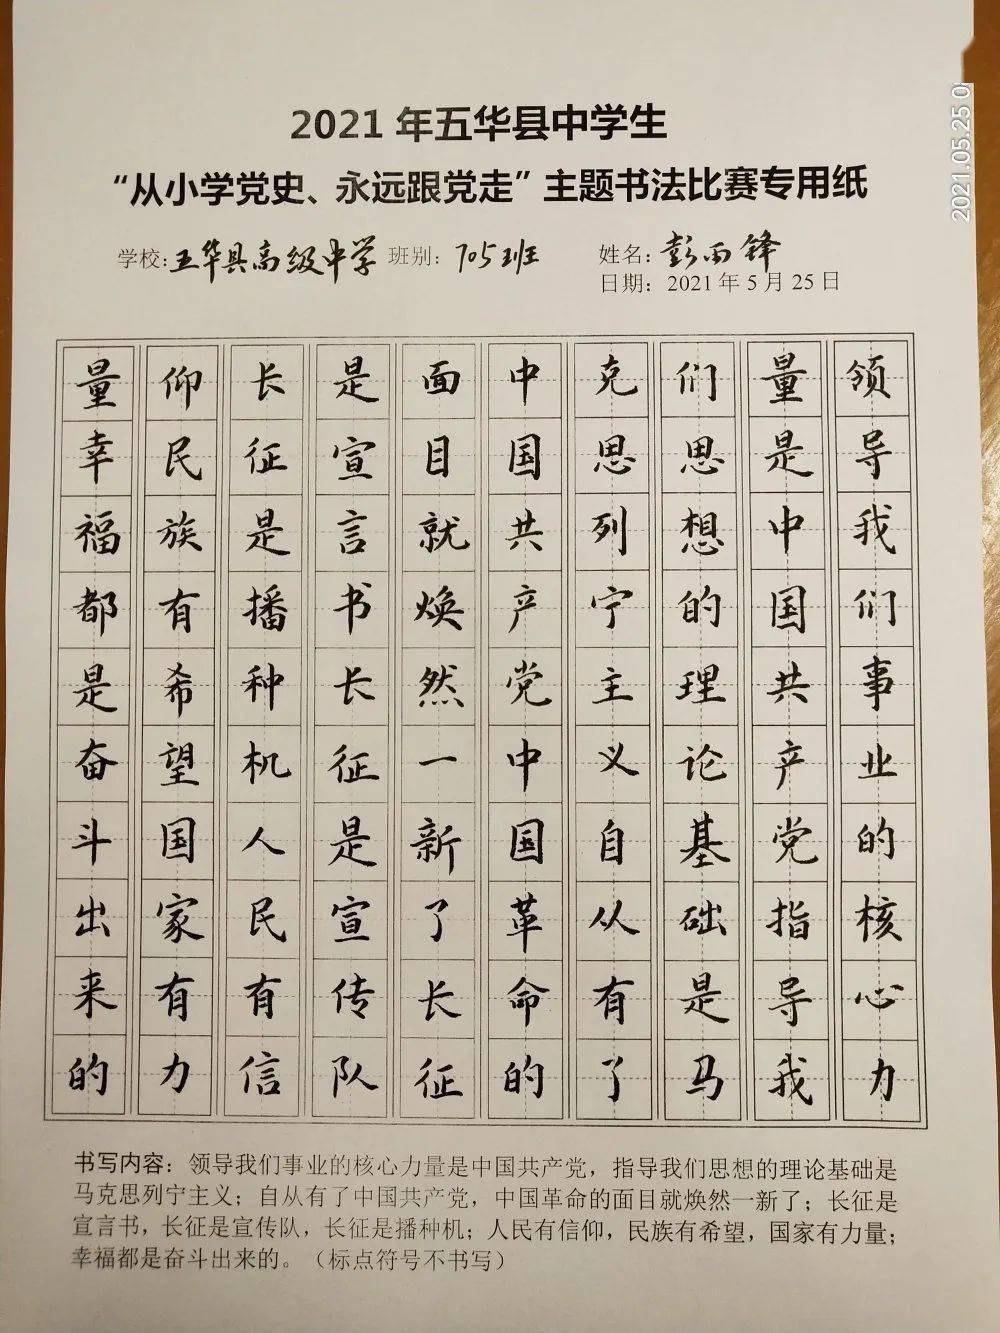 2021年五华县中学生
“从小学党史、永远跟党走”主题书法比赛专用纸
学校：五华县高级中学 班别：705班 姓名：
日期：2021年5月25日
领导我们事业的核心力
量是中国共产党指导我
们思想的理论基础是马
克思列宁主义自从有了
中国共产党中国革命的
面目就焕然一新了长征
是宣言书长征是宣传队
长征是播种机人民有信
仰民族有希望国家有力
量幸福都是奋斗出来的
书写内容：领导我们事业的核心力量是中国共产党，指导我们思想的理论基础是
马克思列宁主义；自从有了中国共产党，中国革命的面目就焕然一新了；长征是
宣言书，长征是宣传队，长征是播种机；人民有信仰，民族有希望，国家有力量；
幸福都是奋斗出来的。（标点符号不书写）
2021.05.25 0